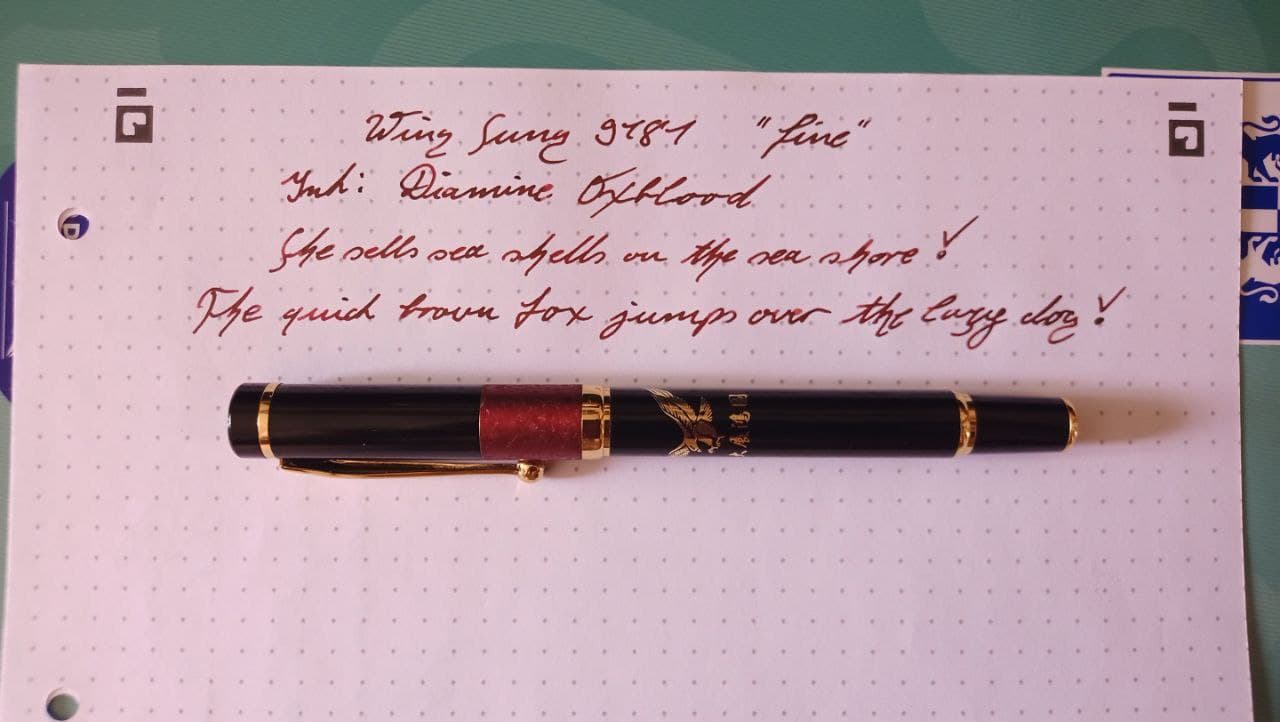 Wing Sung 9181 "fine"
Ink: Diamine Oxblood
She sells sea shells on the sea shore!
The quick brown fox jumps over the lazy dog!